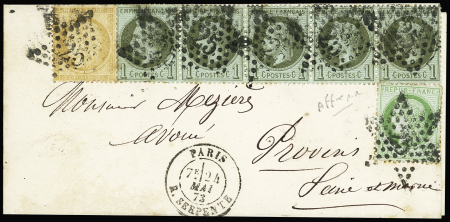 1 C POSTES C 1 C POSTES C 1 C POSTES C 1 C POSTES C 1 C POSTES C 1
REPUB FRANC
Monsieur Mezière
avoué
Provins
Seine et marne
PARIS
7E 24
MAI
73
R. SERPENTE